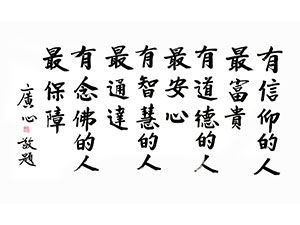 有信仰的人
最富貴
有道德的人
最安心
有智慧的人
最通達
有念佛的人
最保障
廣心敬題